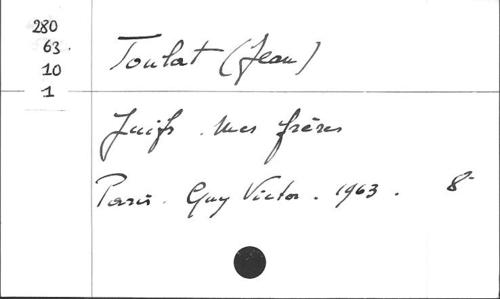 280
63.
10
1
Toulat (Jean)
Juifs mes frères
Paris. Guy Victor. 1963. 8°